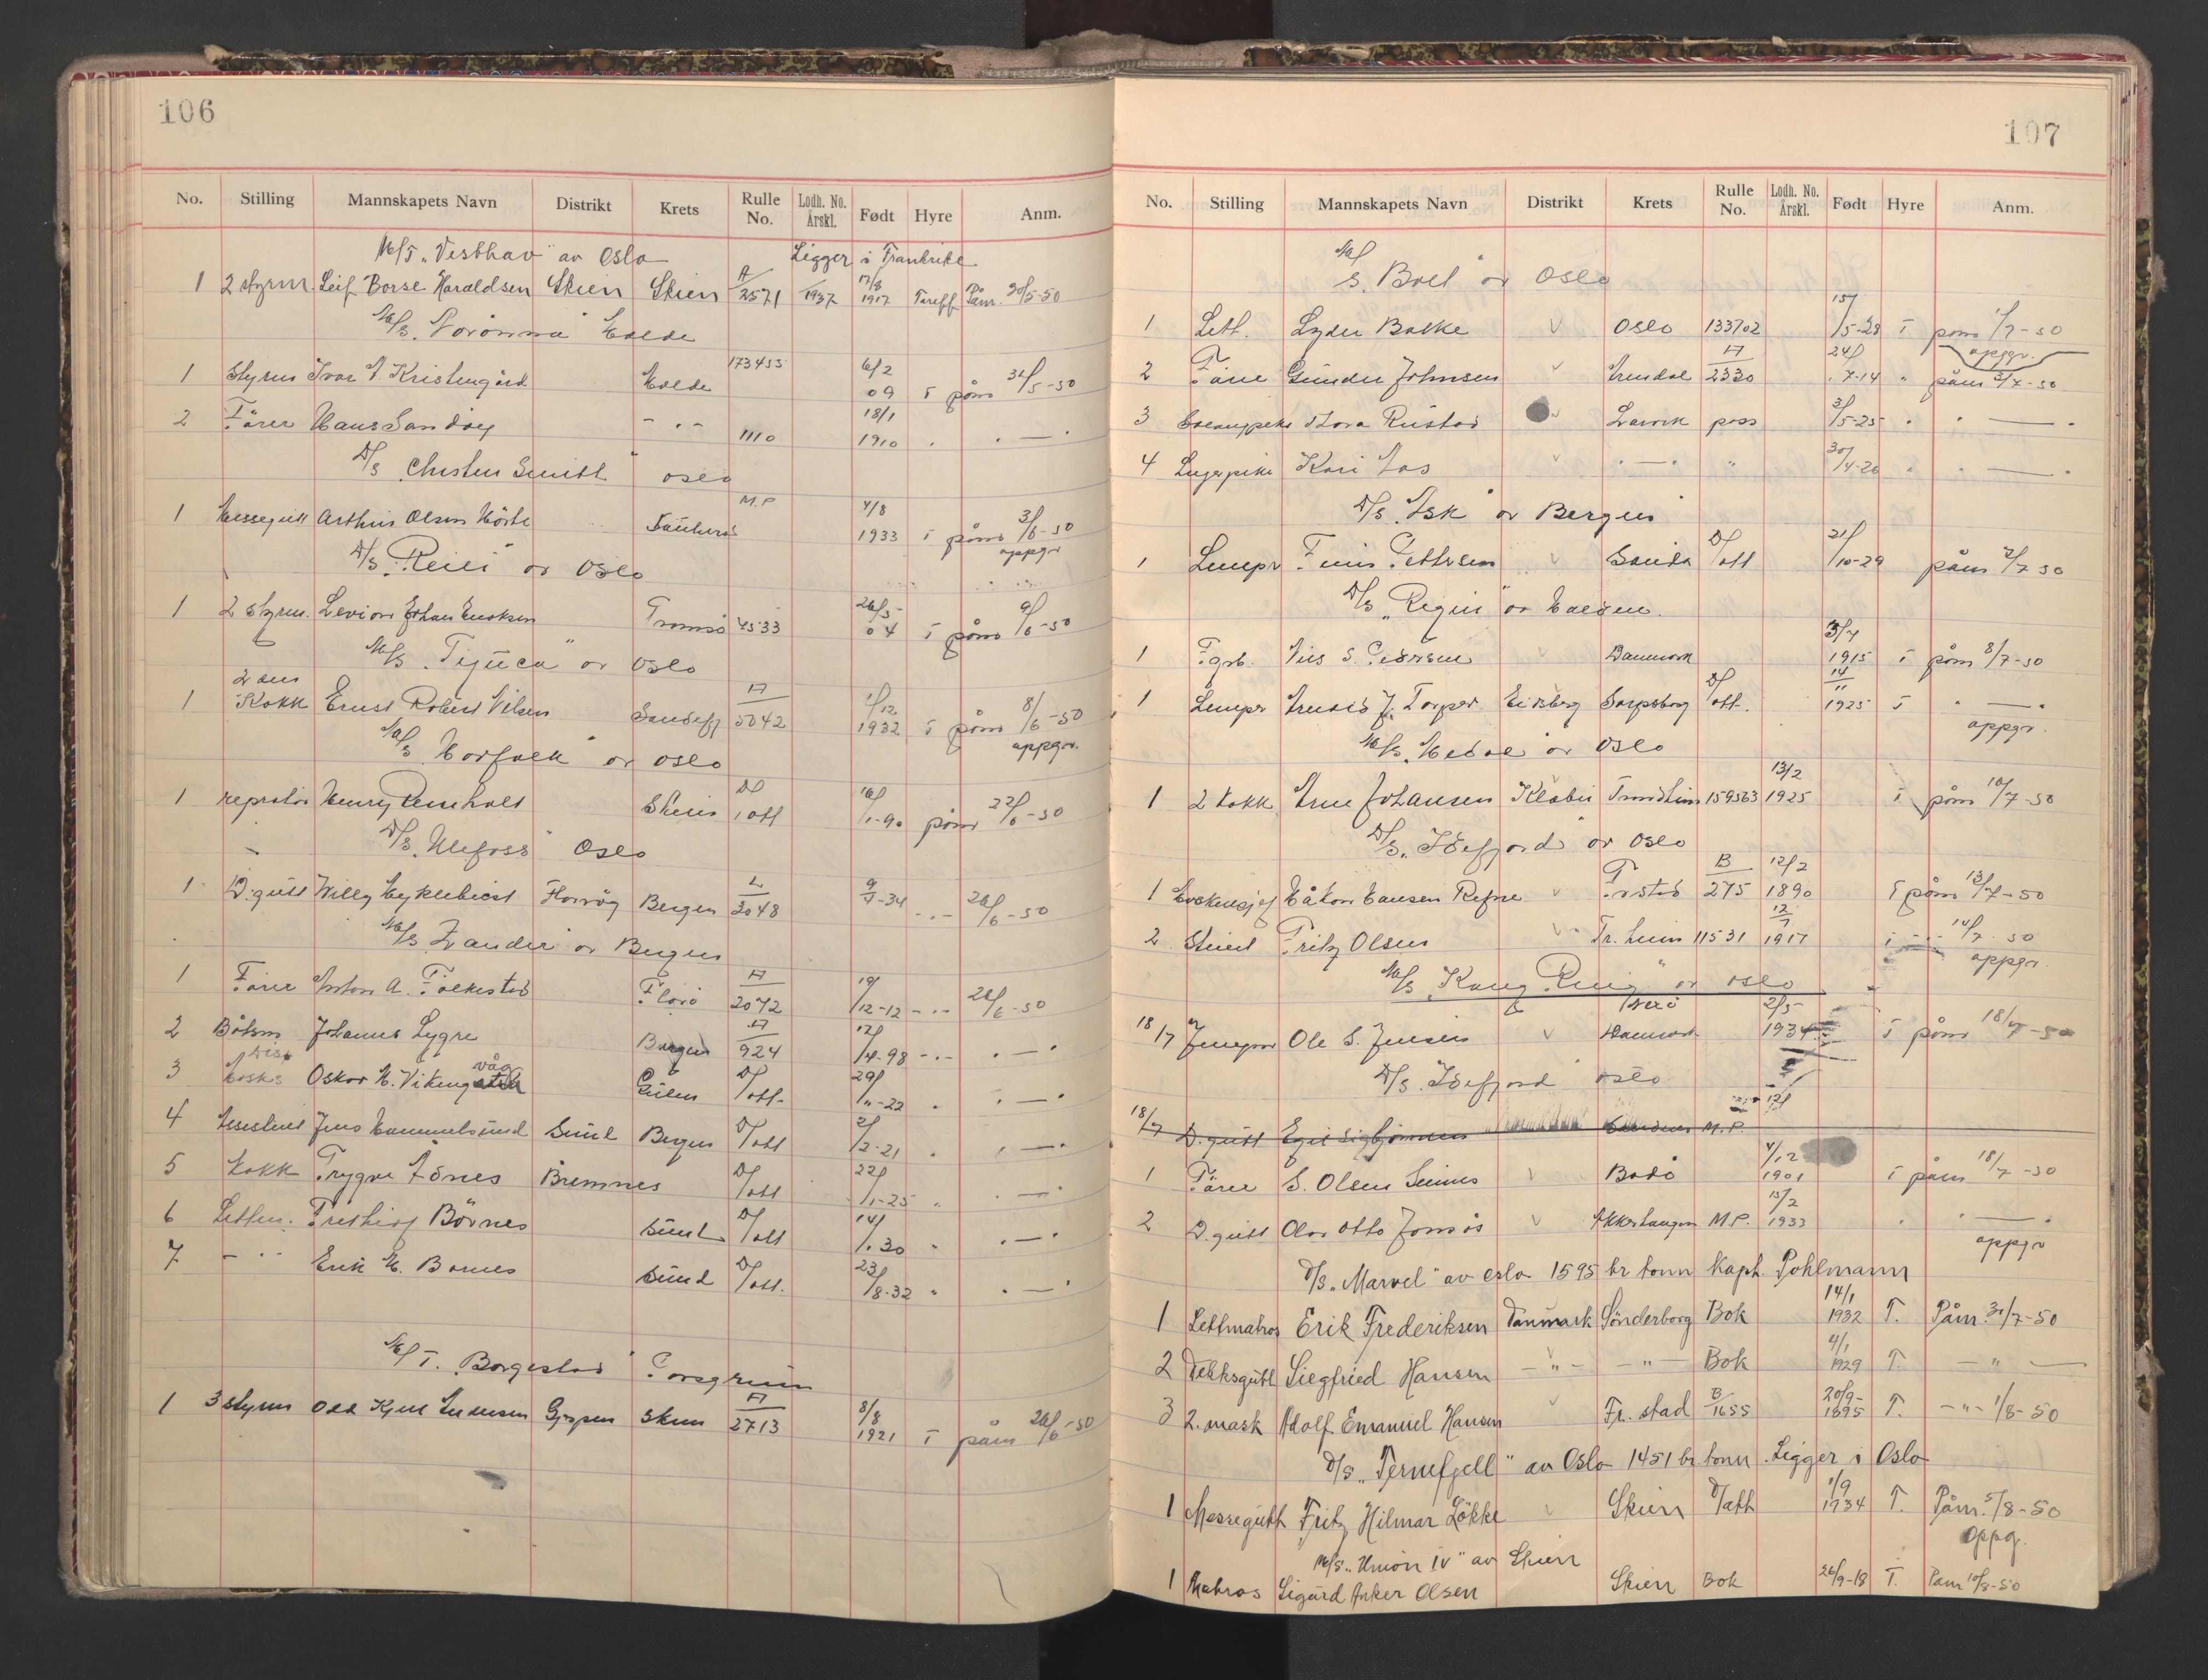 106
No. Stilling Mannskapets Navn Distrikt Krets Rulle No. Lodh. No. Årskl. Født Hyre Anm.
M/T „Vesthav" av Oslo Ligger i Frankrike
1 2 styrm. Leif Borse Haraldsen Skien Skien A/2571 1937 17/8 1917 Tariff Påm. 30/5-50
M/S Molde
1 Styrm Ivar Kristengård Molde 173455 6/2 09 T påm 31/5-50
2 Fører Hans Sandøy - " - 1110 18/1 1910 " " — "
D/S „Christen Smith" Oslo
1 Messegutt Arthur Olsen M.P 4/8 1933 T påm 3/6-50
oppgv
D/S „Rein" av Oslo
1 2 Styrm. Johan Enoksen Tromsö 4533 26/5- 04 T påm 9/6-50
M/S „Tijuca" av Oslo
1 2den Kokk Ernst Robert Nilsen Sandefj A/5042 1/12 1932 T påm 8/6-50
oppgv.
M/S av Oslo
1 repratør Henry Skien D/att 1-90 påm 22/6-50
D/S „Ulefoss" Oslo
1 D.gutt Willy Myklebust Bergen L/2048 9/7-34 - " - 26/6-50
M/S „Zander" av Bergen
1 Fører Anton A. Folkestad Florö A/2072 19/12-12 - " - 26/6-50
2 Båtsm Johannes Lygre Bergen A/924 12/4-98 - " - " — "
3 Oskar M. Vikingvåg Gulen D/att. 29/11-22 " " — "
4 Assistent Jens Hammelsund Sund Bergen D/att 2/2-21 " " — "
5 Kokk Trygve Bremnes D/att 22/1-25 " " — "
6 Lettm. Frithjof Börnes Sund D/att 30 " " — "
7 - " - Erik M. Börnes Sund D/att. 23/8-32 " " — "
M/T. „Borgestad" Porsgrunn
1 3 styrm Odd Kjell Gjerpen Skien A/2713 8/8 1921 T påm 26/6-50
107
No. Stilling Mannskapets Navn Distrikt Krets Rulle No. Lodh. No. Årskl. Født Hyre Anm.
M/S. av Oslo
1 Lett. Oslo 133702 15/5-28 T påm 1/7-50
oppgv.
2 Fører Gunder Johnsen Arendal A/2330 24/7-14 " påm 3/7-50
3 Thora Rustad Larvik pass 3/5-25 " " — "
4 Lugarpike Kari - " - " 30/4-26 " " — "
D/S „Ask" av Bergen
1 Lemper Finn Pettersen Sauda D/att 21/10-29 påm 7/7 50
D/S „Regin" av Halden.
1 Fyrb. Nils S. Pedersen Danmark 1915 T påm 8/7-50
1 Lemper Torper Eidsberg Sarpsborg D/att. 14/11 1925 T " — "
oppgv.
M/S. av Oslo
1 2 Kokk Arne Johansen Klæbu Trondheim 159563 13/2 1925 T påm 10/7-50
D/S. „Idefjord" av Oslo
1 Maskinsjef Håkon Hansen Refne Fr.stad B/275 12/2 1890 T påm 13/7-50
2 Stuert Fritz Olsen Tr.heim 11531 12/7 1917 T - " - 14/7 50
oppgv.
M/S „Kong Ring" av Oslo
18/7 Jungm Ole S. Jensen Danmark 2/5- 1934 T påm 18/7-50
D/S. „Idefjord" Oslo
18/7 D.gutt Egil Sigbjørnsen M.P.
1 Fører S. Olsen Bodö 4/12 1901 T påm 18/7-50
2 D.gutt Olav Otto Akkerhaugen M.P. 15/2 1933 " " — "
oppgv
D/S „Marvel" av Oslo 1595 br tonn Kapt. Pohlmann
1 Lettmatros Erik Frederiksen Danmark Sönderborg Bok 14/1 1932 T. Påm. 31/7-50
2 Dekksgutt Siegfried Hansen - " - - " - Bok 4/1 1929 T. - " -
3 2. mask Adolf Emanuel Hansen Fr. stad B/1655 20/9- 1895 T. - " - 1/8-50
D/S „Ternefjell" av Oslo 1451 br tonn. Ligger i Oslo
1 Messegutt Fritz Hilmar Løkke Skien D/att 1/9 1934 T. Påm. 5/8-50
oppg.
M/S „Union IV" av Skien
1 Matros Sigurd Anker Olsen Skien Bok 26/9-18 T. Påm 10/8-50